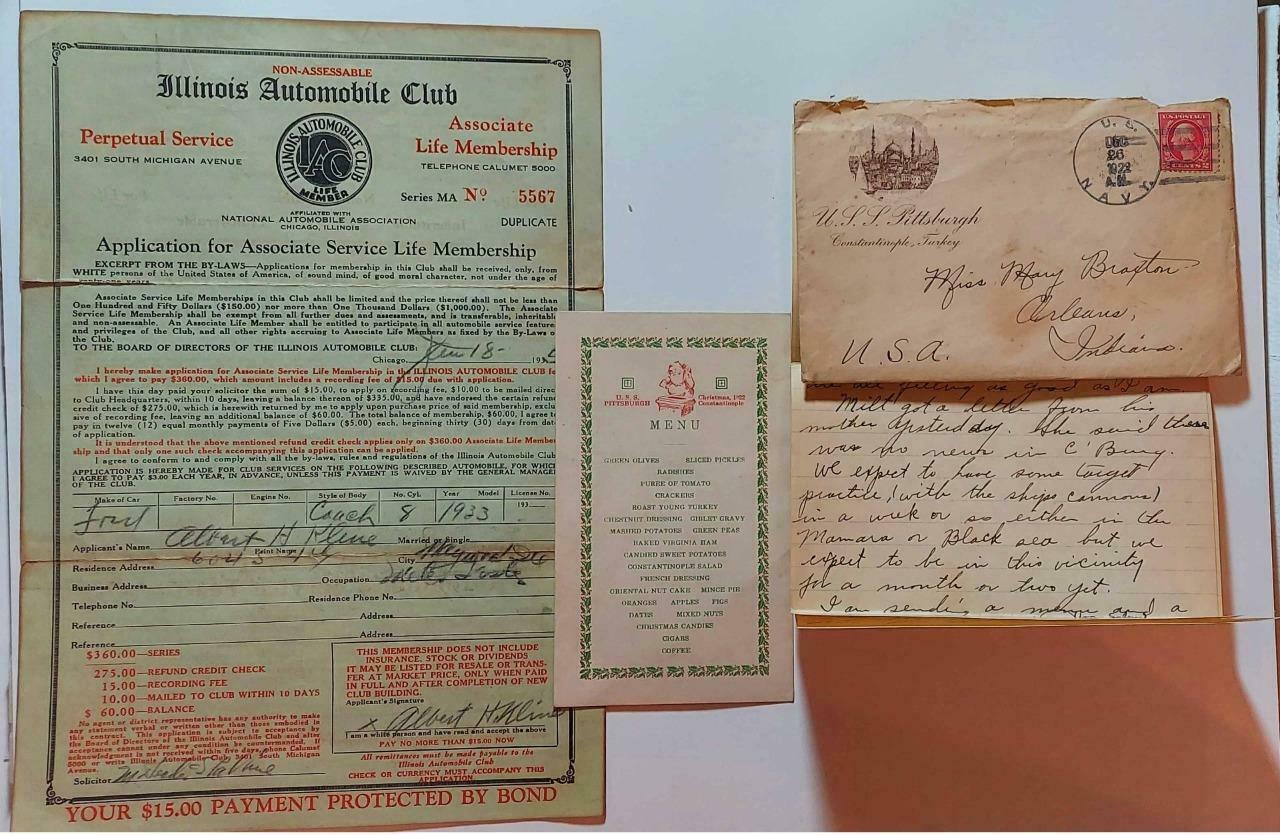 NON-ASSESSABLE
Illinois Automobile Club
Perpetual Service
3401 SOUTH MICHIGAN AVENUE
ILLINOIS AUTOMOBILE CLUB
IAC
LIFE
MEMBER
Associate
Life Membership
TELEPHONE CALUMET 5000
Series MA No 5567
AFFILIATED WITH
NATIONAL AUTOMOBILE ASSOCIATION
CHICAGO, ILLINOIS
DUPLICATE
Application for Associate Service Life Membership
EXCERPT FROM THE BY-LAWS—Applications for membership in this Club shall be received, only, from
WHITE persons of the United States of America, of sound mind, of good moral character, not under the age of
Associate Service Life Memberships in this Club shall be limited and the price thereof shall not be less than
One Hundred and Fifty Dollars ($150.00) nor more than One Thousand Dollars ($1,000.00). The Associate
Service Life Membership shall be exempt from all further dues and assessments, and is transferable, inheritable
and non-assessable. An Associate Life Member shall be entitled to participate in all automobile service features
and privileges of the Club, and all other rights accruing to Associate Life Members as fixed by the By-Laws o
the Club.
TO THE BOARD OF DIRECTORS OF THE ILLINOIS AUTOMOBILE CLUB:
Chicago, Jan 18- 193
I hereby make application for Associate Service Life Membership in the ILLINOIS AUTOMOBILE CLUB fo
which I agree to pay $360.00, which amount includes a recording fee of $15.00 due with application.
I have this day paid your solicitor the sum of $15.00, to apply on recording fee, $10.00 to be mailed direc
to Club Headquarters, within 10 days, leaving a balance thereon of $335.00, and have endorsed the certain refun
credit check of $275.00, which is herewith returned by me to apply upon purchase price of said membership, exclu
sive of recording fee, leaving an additional balance of $60.00. The total balance of membership, $60.00, I agree t
pay in twelve (12) equal monthly payments of Five Dollars ($5.00) each, beginning thirty (30) days from date
of application.
It is understood that the above mentioned refund credit check applies only on $360.00 Associate Member
ship and that only one such check accompanying this application can be applied.
I agree to conform to and comply with all the by-laws, rules and regulations of the Illinois Automobile Club
APPLICATION IS HEREBY MADE FOR CLUB SERVICES ON THE FOLLOWING DESCRIBED AUTOMOBILE, FOR WHICH
I AGREE TO PAY $3.00 EACH YEAR, IN ADVANCE, UNLESS THIS PAYMENT IS WAIVED BY THE GENERAL MANAGER
OF THE CLUB.
Make of Car Factory No. Engine No. Style of Body No. Cyl. Year Model License No.
Ford Coach 8 1933 193
Applicant's Name Albert H Kline Married or Single
Print Name
Residence Address City
Business Address Occupation
Telephone No. Residence Phone No.
Reference Address
Reference Address
$360.00—SERIES
275.00—REFUND CREDIT CHECK
15.00—RECORDING FEE
10.00—MAILED TO CLUB WITHIN 10 DAYS
$ 60.00—BALANCE
No agent or district representative has any authority to make
any statement verbal or written other than those embodied in
this contract. This application is subject to acceptance by
the Board of Directors of the Illinois Automobile Club and after
acceptance cannot under any condition be countermanded. If
acknowledgment is not received within five days, phone Calumet
5000 or write Illinois Automobile Club 3401 South Michigan
Avenue.
Solicitor
THIS MEMBERSHIP DOES NOT INCLUDE
INSURANCE, STOCK OR DIVIDENDS
IT MAY BE LISTED FOR RESALE OR TRANS-
FER AT MARKET PRICE, ONLY WHEN PAID
IN FULL AND AFTER COMPLETION OF NEW
CLUB BUILDING.
Applicant's Signature
x Albert H. Kline
I am a white person and have read and accept the above
PAY NO MORE THAN $15.00 NOW
All remittances must be made payable to the
Illinois Automobile Club
CHECK OR CURRENCY MUST ACCOMPANY THIS
APPLICATION
YOUR $15.00 PAYMENT PROTECTED BY BOND
U. S. S.
PITTSBURGH
Christmas, 1922
Constantinople
MENU
GREEN OLIVES SLICED PICKLES
RADISHES
PUREE OF TOMATO
CRACKERS
ROAST YOUNG TURKEY
CHESTNUT DRESSING GIBLET GRAVY
MASHED POTATOES GREEN PEAS
BAKED VIRGINIA HAM
CANDIED SWEET POTATOES
CONSTANTINOPLE SALAD
FRENCH DRESSING
ORIENTAL NUT CAKE MINCE PIE
ORANGES APPLES FIGS
DATES MIXED NUTS
CHRISTMAS CANDIES
CIGARS
COFFEE
U.S.S. Pittsburgh
Constantinople, Turkey
U. S.
DEC
26
1922
A.M.
NAVY.
U.S. POSTAGE
2 CENTS 2
Miss Mary Braxton
Orleans,
Indiana.
U.S.A.
are all feeling as good as I am.
Milt got a letter from his
mother yesterday. She said there
was no news in C'Burg.
We expect to have some target
practice, (with the ships cannons)
in a week or so either in the
Mamara or Black sea but we
expect to be in this vicinity
for a month or two yet.
I am sending a menu and a